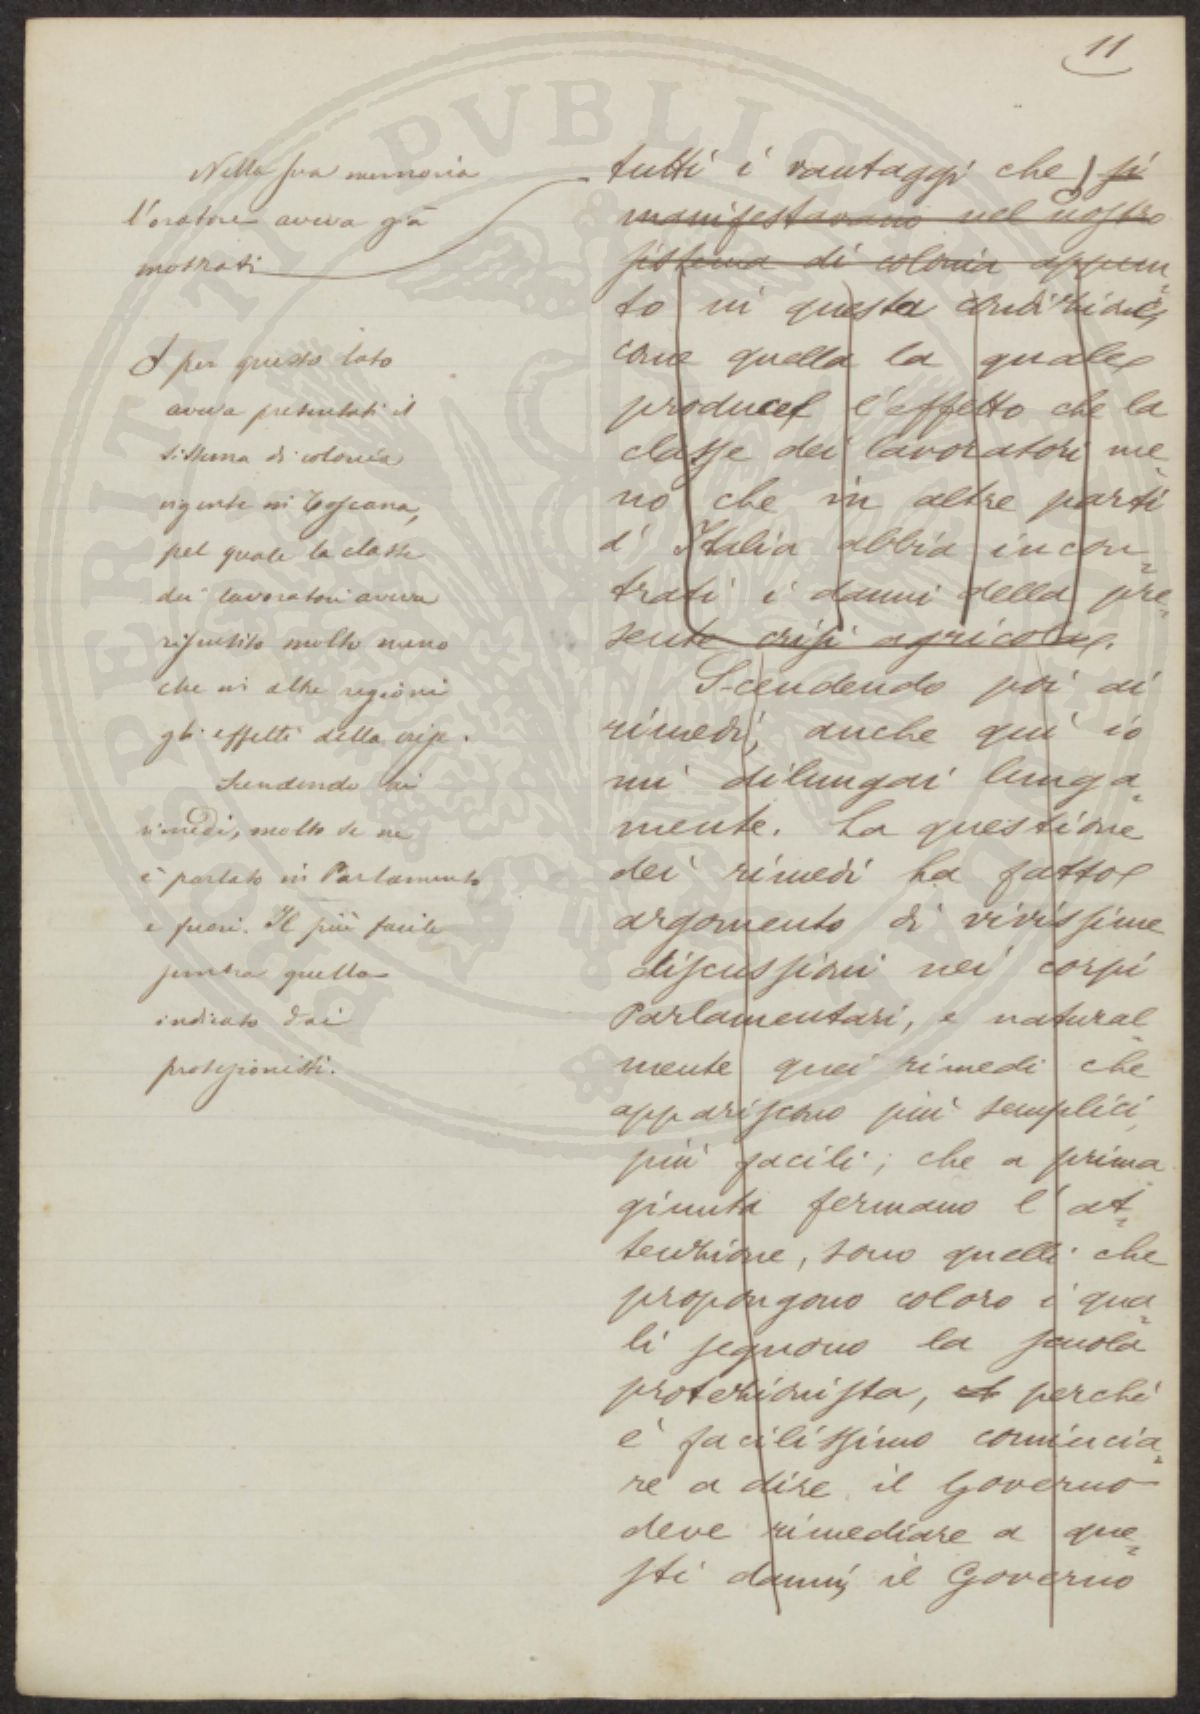 11
Nella sua memoria
l'oratore aveva già
mostrati
E per questo lato
aveva presentati il
sistema di colonia
vigente in Toscana,
pel quale la classe
dei lavoratori aveva
risentito molto meno
che in altre regioni
gli effetti della crisi.
Scendendo ai
rimedi, molto se ne
è parlato in Parlamento
e fuori. Il più facile
sembra quello
indicato dai
protezionisti.
tutti i vantaggi che si
manifestavano nel nostro
sistema di colonia appun=
to in questa condizione,
come quella la quale
produce l'effetto che la
classe dei lavoratori me=
no che in altre parti
d'Italia abbia incon=
trati i danni della pre=
sente crisi agricola.
Scendendo poi ai
rimedi, anche qui io
mi dilungai lunga=
mente. La questione
dei rimedi ha fatto
argomento di vivissime
discussioni nei corpi
Parlamentari, e natural=
mente quei rimedi che
appariscono più semplici,
più facili; che a prima
giunta fermano l'at=
tenzione, sono quelli che
propongono coloro i qua=
li seguono la scuola
protezionista, perchè
è facilissimo comincia=
re a dire il Governo
deve rimediare a que=
sti danni, il Governo
PERITAT PVBLICA